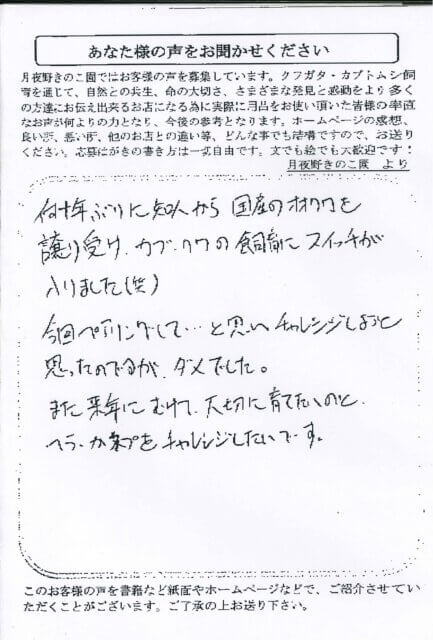 あなた様の声をお聞かせください
月夜野きのこ園ではお客様の声を募集しています。クワガタ・カブトムシ飼
育を通じて、自然との共生、命の大切さ、さまざまな発見と感動をより多く
の方達にお伝え出来るお店になる為に実際に用品をお使い頂いた皆様の率直
なお声が何よりの力となり、今後の参考となります。ホームページの感想、
良い所、悪い所、他のお店との違い等、どんな事でも結構ですので、お送り
ください。応募はがきの書き方は一切自由です。文でも絵でも大歓迎です！
月夜野きのこ園 より
何十年ぶりに知人から国産のオオクワを
譲り受け、カブ・クワの飼育にスイッチが
入りました(笑)
今回ペアリングして…と思いチャレンジしようと
思ったのですが、ダメでした。
また来年にむけて、大切に育てたいのと
ヘラ、カネプをチャレンジしたいです。
このお客様の声を書籍など紙面やホームページなどで、ご紹介させてい
ただくことがございます。ご了承の上お送り下さい。